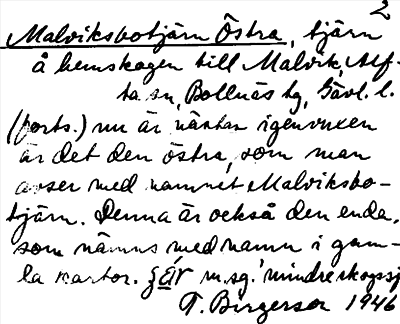 2
Malviksbotjärn Östra, tjärn
å hemskogen till Malvik, Alf-
ta sn, Bollnäs tg, Gävl. l.
(forts.) nu är nästan igenvuxen
är det den östra, som man
avser med namnet Malviksbo-
tjärn. Denna är också den enda,
som nämns med namn i gam-
la kartor. här m.sg. mindre skogssj
T. Birgerson 1946